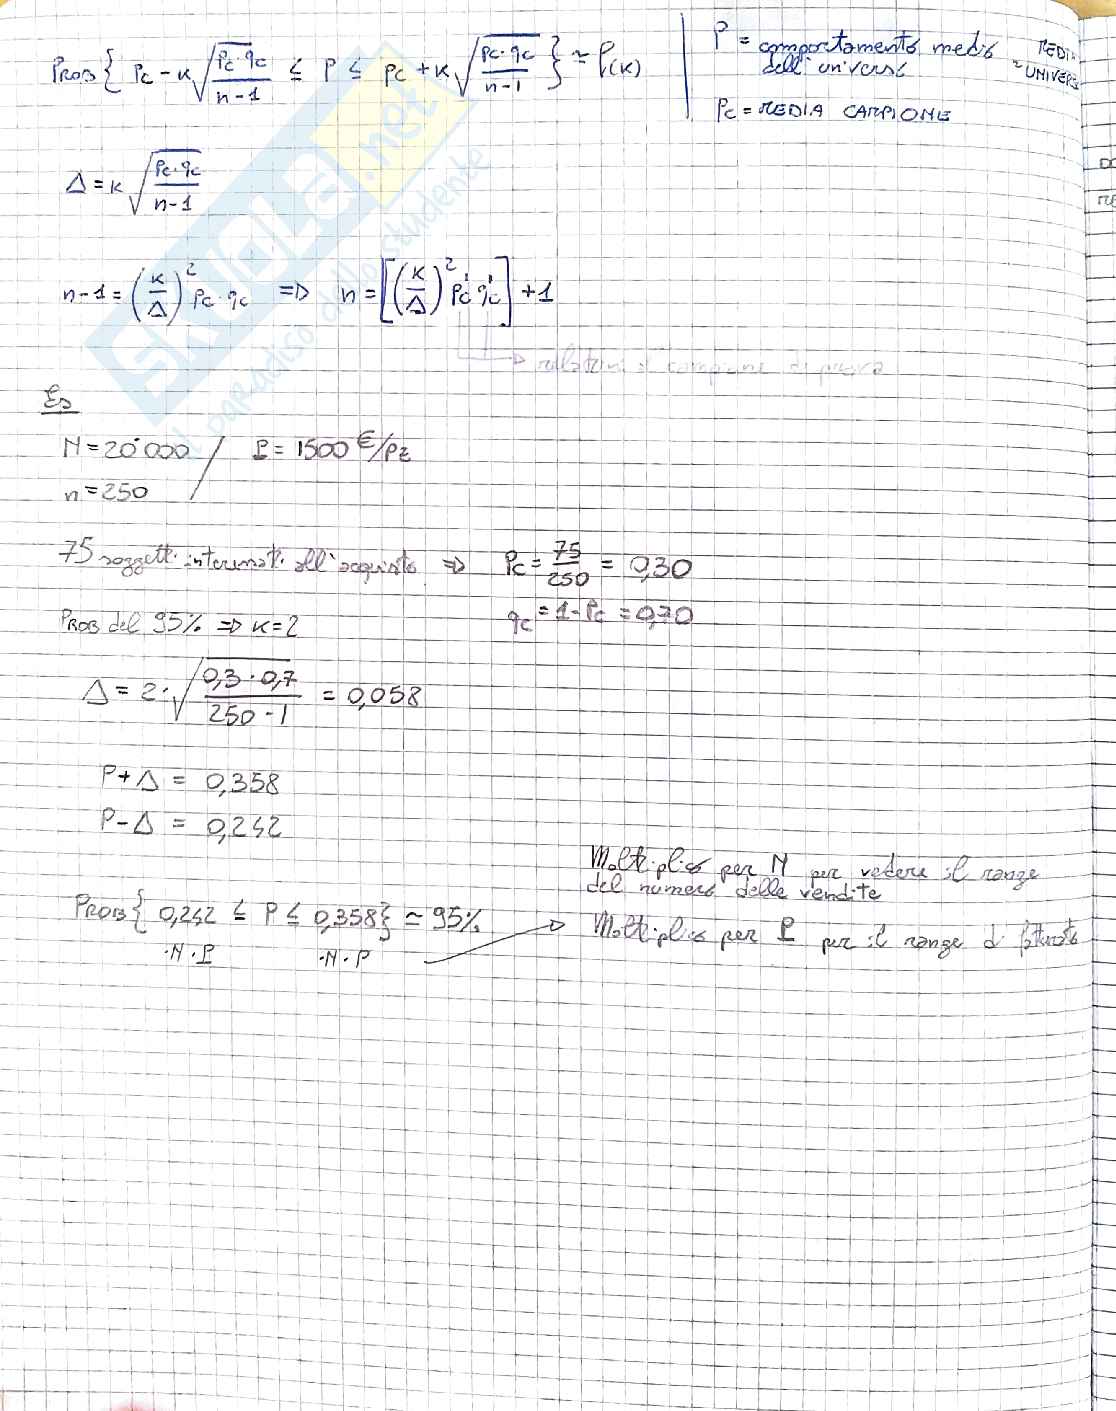 PROB { Pc - K √(Pc·qc / n-1) ≤ P ≤ Pc + K √(Pc·qc / n-1) } ≃ P(K)
P = comportamento medio dell'universo
= MEDIA UNIVERS
Pc = MEDIA CAMPIONE
Δ = K √(Pc·qc / n-1)
n-1 = (K/Δ)² Pc·qc ⇒ n = [(K/Δ)² Pc' qc'] + 1
→ relativi al campione di prova
Es
N = 20'000 / P = 1500 €/Pz
n = 250
75 soggetti interessati all'acquisto ⇒ Pc = 75/250 = 0,30
qc = 1 - Pc = 0,70
PROB del 95% ⇒ K = 2
Δ = 2·√(0,3·0,7 / 250-1) = 0,058
P+Δ = 0,358
P-Δ = 0,242
Moltiplico per N per vedere il range
del numero delle vendite
PROB { 0,242 ≤ P ≤ 0,358 } ≃ 95%
·N·P ·N·P
→ Moltiplico per P per il range di fatturato
SKUOLA.net
il paradiso dello studente